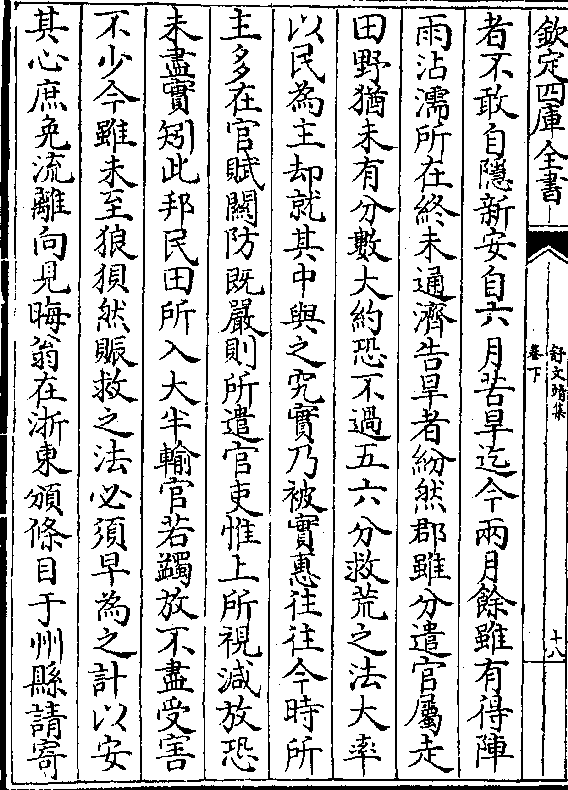 欽定四庫全書
舒文靖集
卷下
十八
者不敢自隱新安自六月苦旱迄今兩月餘雖有得陣
雨沾濡所在終未通濟告旱者紛然郡雖分遣官屬走
田野猶未有分數大約恐不過五六分救荒之法大率
以民為主却就其中與之究實乃被實惠往往今時所
主多在官賦關防既嚴則所遣官吏惟上所視減放恐
未盡實矧此邦民田所入大半輸官若蠲放不盡受害
不少今雖未至狼狽然賑救之法必須早為之計以安
其心庶免流離向見晦翁在浙東頒條目于州縣請寄